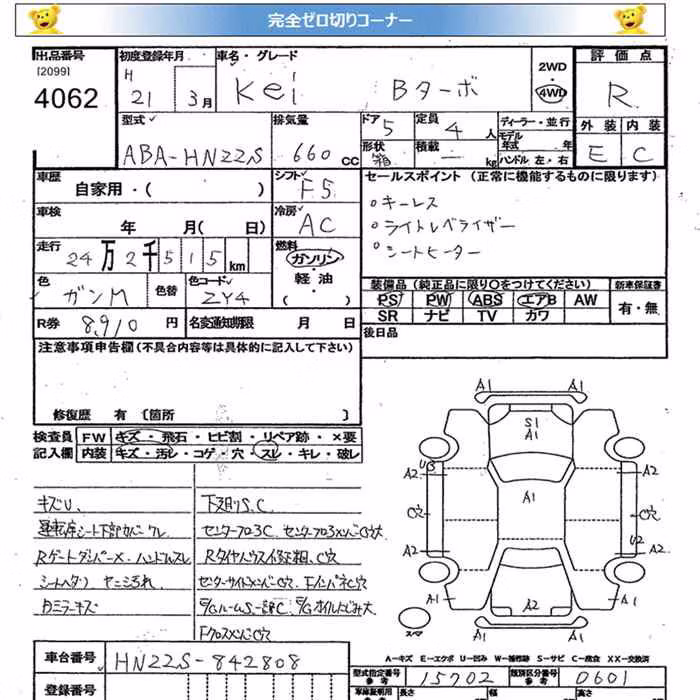 完全ゼロ切りコーナー
出品番号 初度登録年月 車名・グレード 2WD 4WD 評価点
[2099] H
4062 21 3月 Kei Bターボ R
型式 排気量 ドア 定員 ディーラー・並行 外装 内装
ABA-HN22S 660cc 5 4人 モデル年式 年 E C
形状 箱 積載 - kg ハンドル 左・右
車歴 自家用・( ) シフト F5 セールスポイント (正常に機能するものに限ります)
車検 年 月( 日) 冷房 AC
。キーレス
。ライトレベライザー
。シートヒーター
走行 24万2千515km 燃料 ガソリン・軽油・( )
色 ガンM 色替 色コード ZY4
装備品 (純正品に限り○をつけてください) 新車保証書
PS PW ABS エアB AW 有・無
SR ナビ TV カワ
R券 8,910円 名変通知期限 月 日 後日品
注意事項申告欄 (不具合内容等は具体的に記入して下さい)
修復歴 有 [箇所 ]
検査員記入欄 FW キズ・飛石・ヒビ割・リペア跡・×要
内装 キズ・汚レ・コゲ・穴・スレ・キレ・破レ
キズU、
運転席シート下部カバーワレ
RゲートダンパーX、ハンドルスレ
シートヘタリ ヤニ汚れ
カミラーキズ
下廻りS、C
センターフロアC、センターフロアメンバーC穴大
RタイヤハウスC穴
センターサイドメンバーC穴 FインパネC穴
E/Gルーム S一部C、E/Gオイルにじみ大
FクロスメンバーC穴
A1 A1
S1
A1
U3
A2 A2
C穴 A1 C穴
U2
A2 A2
A1 A2 A1
スペア
A1
A-キズ E-エクボ U-凹み W-補修跡 S-サビ C-腐食 XX-交換済
車台番号 HN22S-842808 型式指定番号 参考 15702 類別区分番号 参考 0601
登録番号 車庫証明用 参考 長さ 幅 高さ